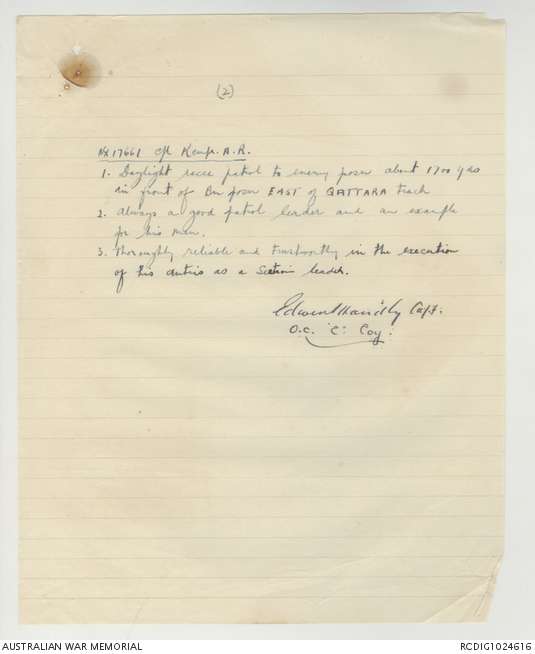 (2)
NX17661 Cpl Kemp. A.R.
1. Daylight recce patrol to enemy posn about 1700 yds
in front of Bn posn EAST of QATTARA track
2. Always a good patrol leader and an example
for his men.
3. Thoroughly reliable and trustworthy in the execution
of his duties as a Section leader.
Capt.
O.C. "C" Coy.
AUSTRALIAN WAR MEMORIAL
RCDIG1024616